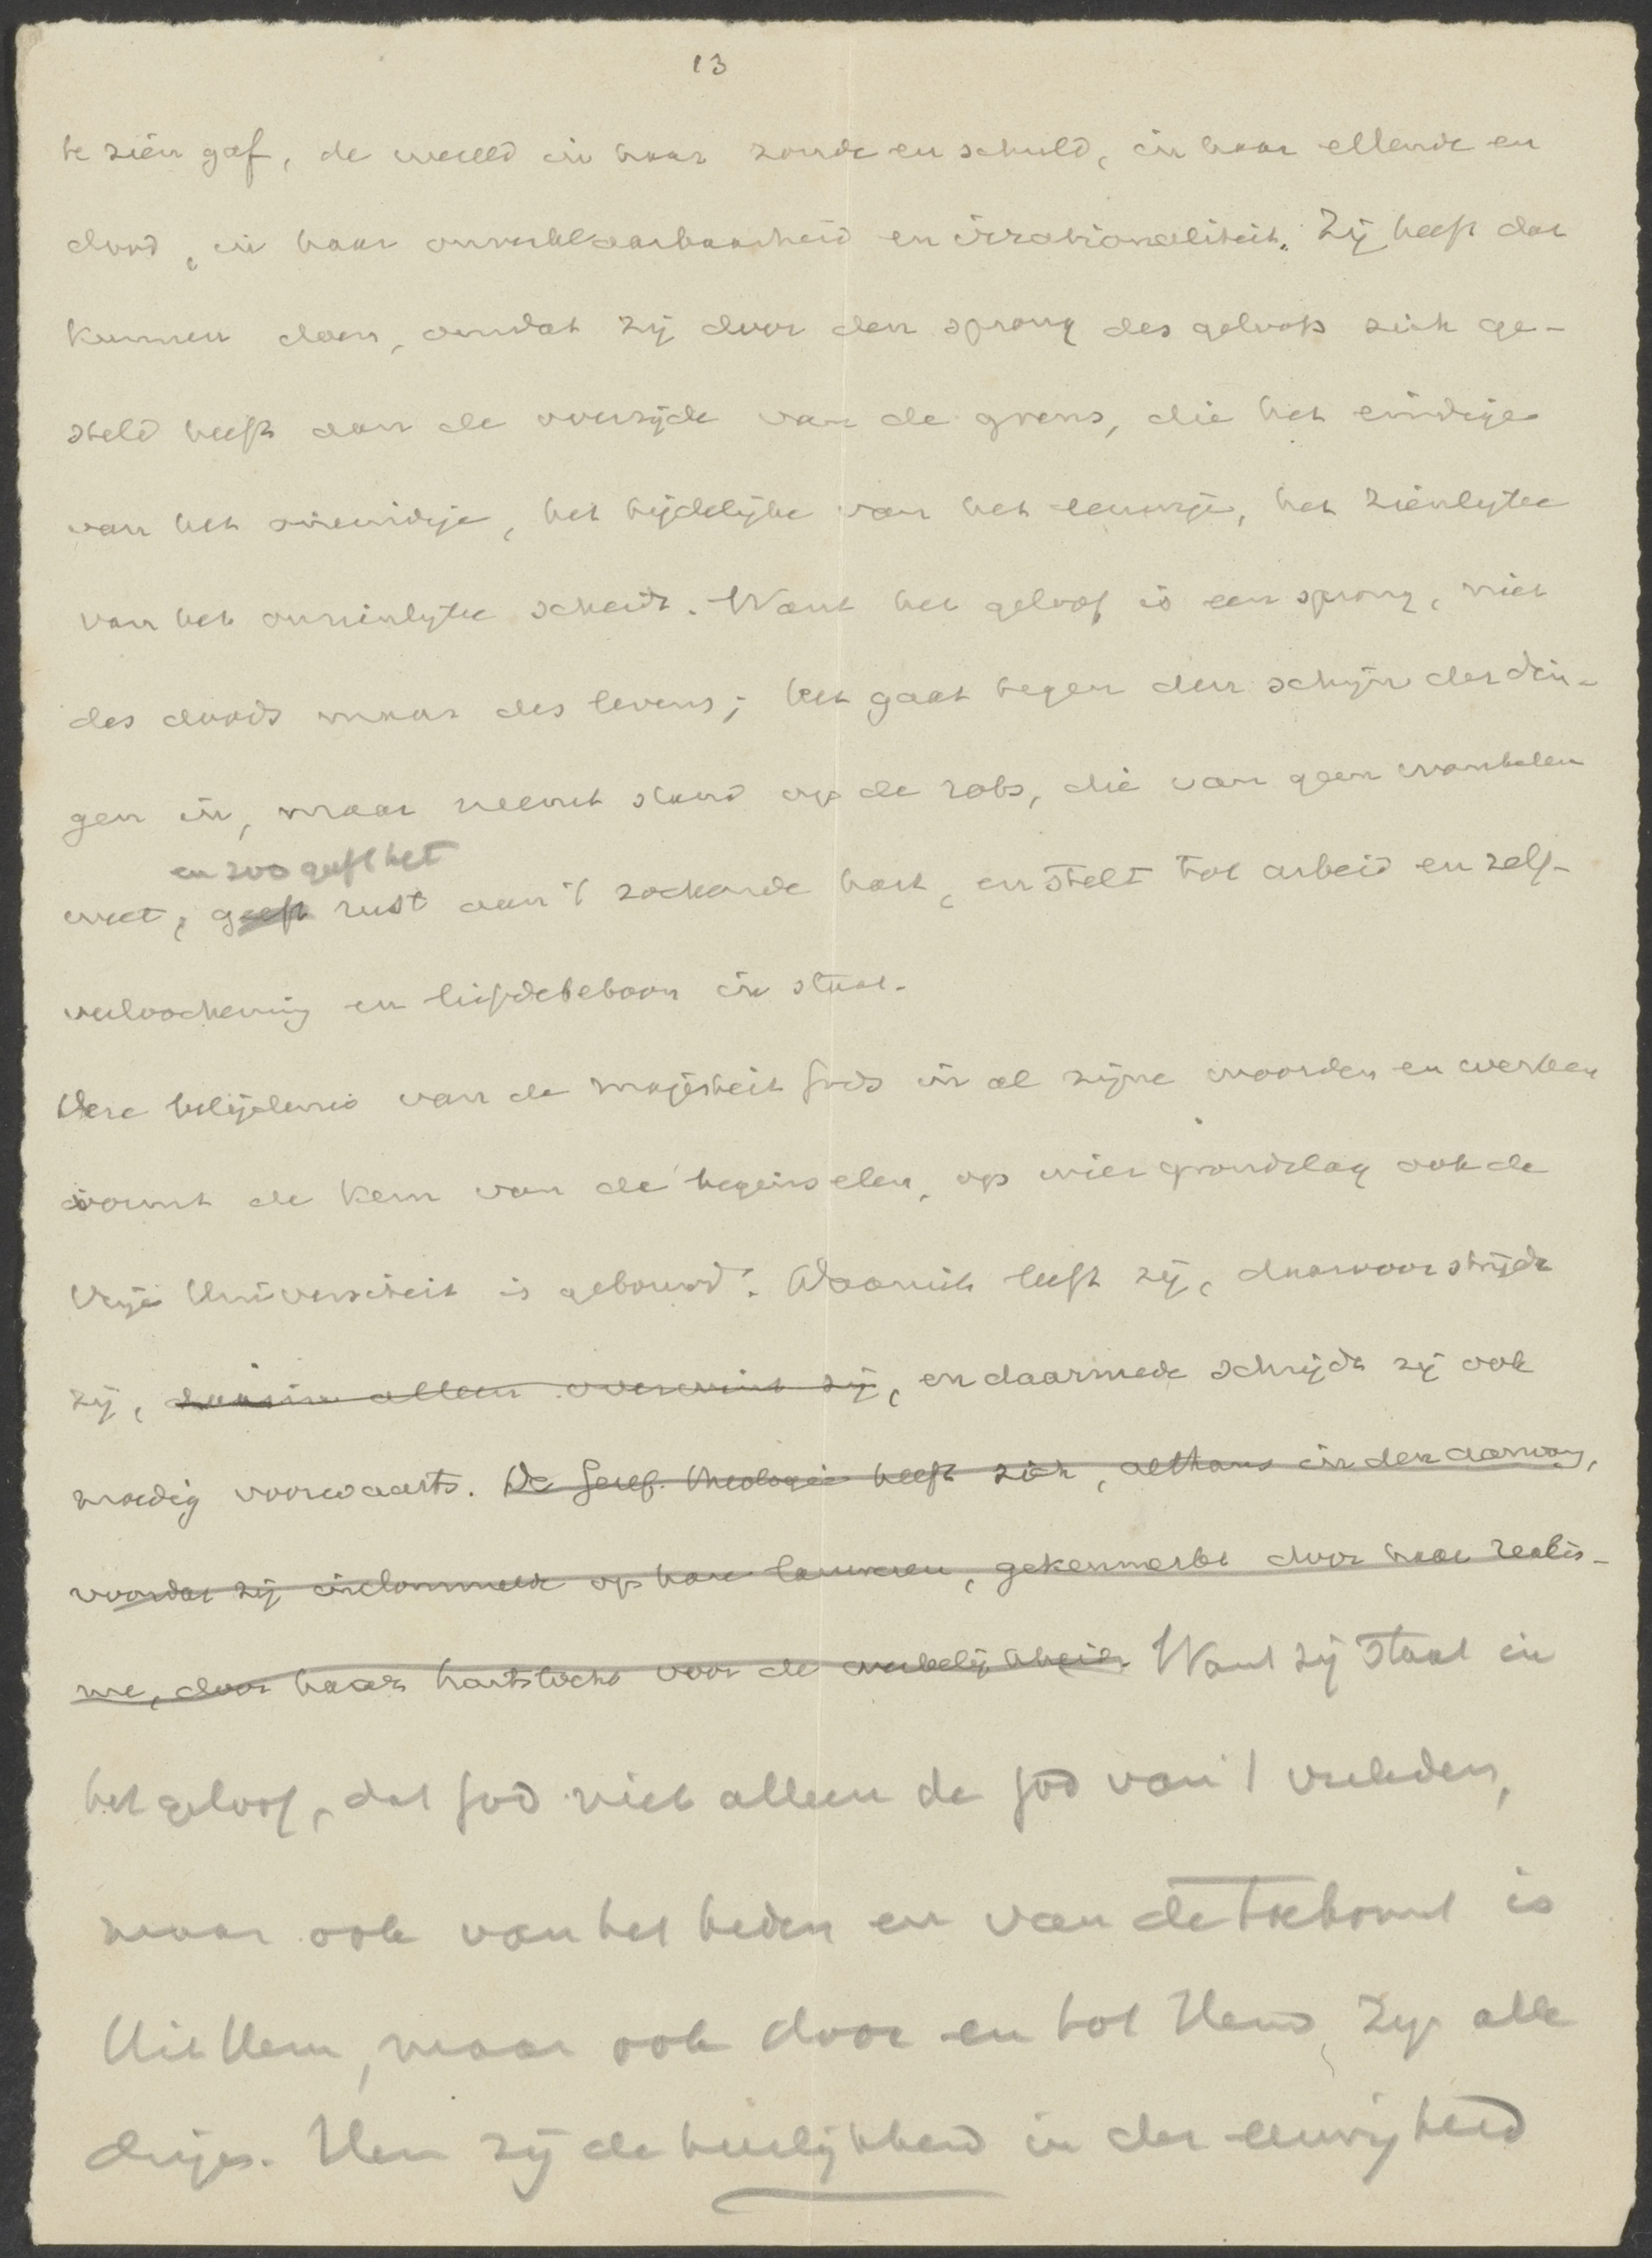 13
te zien gaf, de wereld in haar zonde en schuld, in haar ellende en
dood, in haar onverklaarbaarheid en irrationaliteit. Zij heeft dat
kunnen doen, omdat zij door den sprong des geloofs zich ge-
steld heeft aan de overzijde van de grens, die het eindige
van het oneindige, het tijdelijke van het eeuwige, het zienlijke
van het onzienlijke scheidt. Want het geloof is een sprong, niet
des doods maar des levens; het gaat tegen den schijn der din-
gen in, maar neemt stand op de rots, die van geen wankelen
en zoo geeft het
weet, geeft rust aan 't zoekende hart, en stelt tot arbeid en zelf-
verloochening en liefdebetoon in staat.
Deze belijdenis van de majesteit Gods in al zijne woorden en werken
vormt de kern van de beginselen, op wier grondslag ook de
Vrije Universiteit is gebouwd. Daaruit leeft zij, daarvoor strijdt
zij, daarin alleen overwint zij, en daarmede schrijdt zij ook
moedig voorwaarts. De Geref. theologie heeft zich, althans in den aanvang,
voordat zij indommelde op hare lauweren, gekenmerkt door haar realis-
me, door haar hartstocht voor de werkelijkheid. Want zij staat in
het geloof, dat God niet alleen de God van 't verleden,
maar ook van het heden en van de toekomst is
Uit Hem, maar ook door en tot Hem, zijn alle
dingen. Hem zij de heerlijkheid in der eeuwigheid